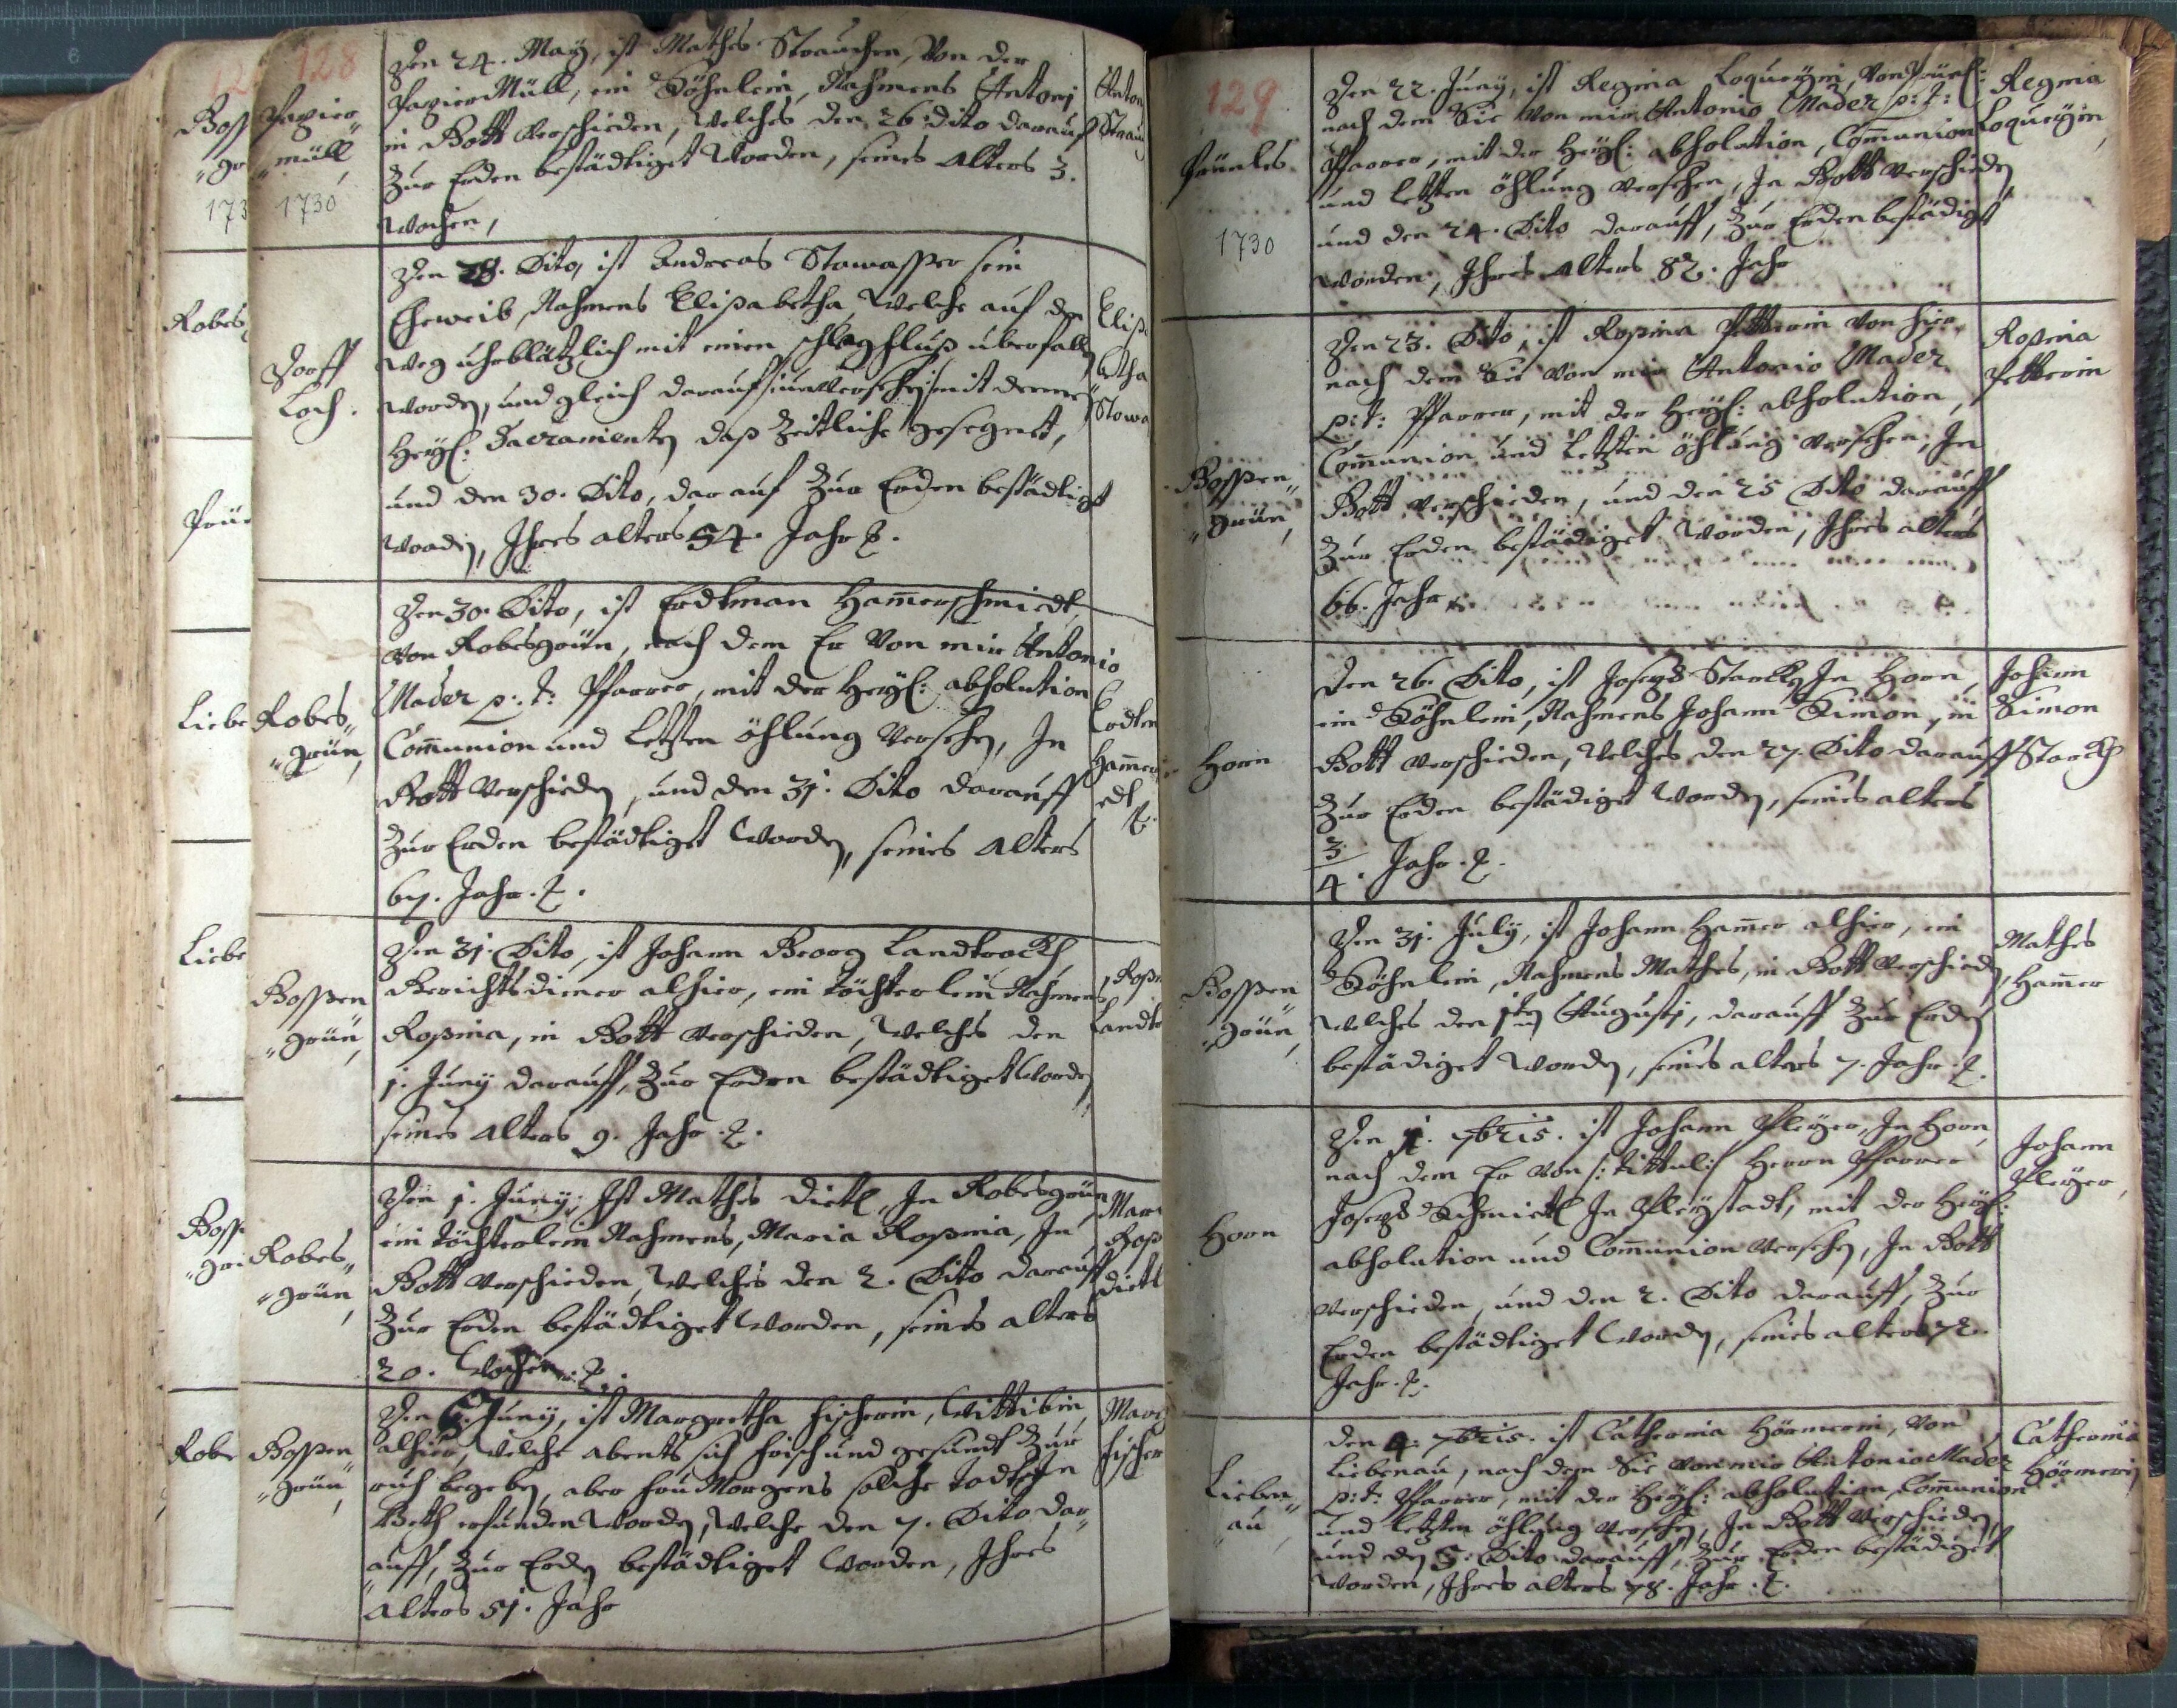 128
Papier
„müll,
1730
Den 24. Maÿ, ist Mathes Strauchen, Von der
Papier Müll, ein Söhnlein, Nahmens Antonj
in Gott verschieden, Welches den 26. dito darauf
Zur Erden bestädtiget Worden, seines Alters 3.
Wochen,
Anton
Dorff
Loch.
Den 28. Dito, ist Andreas Stowasser sein
Eheweib, Nahmens Elisabetha, Welche auf dem
Weg uhrblätzlich mit einen schlagfluß uberfallen
Worden, und gleich darauf unversehen mit denen
Heyl: Sacramenten daß Zeitliche gesegnet,
und den 30. Dito, darauf Zur Erden bestädtiget
Worden, Ihres alters 54. Jahr
Robes„
„grün,
Den 30. Dito, ist Erdtman Hammerschmiedt
von Robesgrün, nach dem Er Von mir Antonio
Mader p: t: Pfarrer, mit der Heyl: absolution
Communion und Letzten öhlung Versehen, In
Gott Verschieden, und den 31. Dito darauff
Zur Erden bestädtiget Worden, seines Alters
67. Jahr.
Gossen
„grün,
Den 31. Dito, ist Johann Georg Landtrockh
Gerichtsdiener alhier, ein töchterlein Nahmens
Rosina, in Gott Verschieden, Welches den
1. Junÿ darauff, Zur Erden bestädtiget Worden
seines Alters 9. Jahr.
Robes„
„grün,
Den 1. Junÿ, Ist Mathes Dietl, In Robesgrün
ein töchterlein Nahmens, Maria Rosina, In
Gott Verschieden, Welches den 2. Dito darauff
Zur Erden bestädtiget Worden, seines alters
20. Wochen.
Gossen
„grün,
Den 6. Junÿ, ist Margretha Fischerin, Wittibin
alhier, Welche abents sich frisch und gesundt Zur
ruh begeben, aber fru Morgens solche todter In
Beth erfunden Worden, Welche den 7. Dito dar„
„auff, Zur Erden bestädtiget Worden, Ihres
Alters 51. Jahr
129
Prünles
1730
Den 22. Junÿ, ist Regina Loqueÿin, von Prünl:
nach dem Sie Von mir Antonio Mader p: t:
Pfarrer, mit der Heyl: absolution, Communion
und Letzten öhlung Versehen, In Gott Verschieden,
und den 24. Dito darauff, Zur Erden bestädiget
worden, Ihres Alters 82. Jahr
Regina
Loqueÿin,
Gossen„
„grün,
Den 23. Dito, ist Rosina Petterin Von hier
nach dem Sie Von mir Antonio Mader
p: t: Pfarrer, mit der Heyl: absolution,
Communion und Letzten öhlung Versehen, In
Gott Verschieden, und den 25 Dito darauff
Zur Erden bestädiget Worden, Ihres alters
66. Jahr
Rosina
Petterin
Horn
Den 26. Dito, ist Joseph Starckh In Horn
ein Söhnlein, Nahmens Johann Simon, in
Gott verschieden, Welches den 27. Dito darauff
Zur Erden bestädiget Worden, seines alters
3/4. Jahr.
Johann
Simon
Starckh
Gossen
„grün,
Den 31. Julÿ, ist Johann Hammer alhier, ein
Söhnlein, Nahmens Mathes, in Gott Verschieden,
Welches den 1ten Augustj, darauff Zur Erden
bestädiget Worden, seines alters 7. Jahr.
Mathes
Hammer
Horn
Den 1. 7bris. ist Johann Pleÿer, In Horn,
nach dem Er Von |: tittul :| Herrn Pfarrer
Joseph Schmiedl In Pleÿstadt, mit der Heyl:
absolution und Communion Versehen, In Gott
verschieden, und den 2. Dito darauff, Zur
Erden bestädtiget Worden, seines alters 72.
Jahr.
Johann
Pleÿer,
Lieben„
„au
den 4. 7bris. ist Catherina Hörmerin, von
Liebenau, nach dem Sie von mir Antonio Mader
p: t: Pfarrer, mit der Heyl: absolution, Communion
und Letzten öhlung Versehen, In Gott Verschieden,
und den 5. Dito darauff, Zur Erden bestädiget
Worden, Ihres alters 78. Jahr.
Catherina
Hörmerin